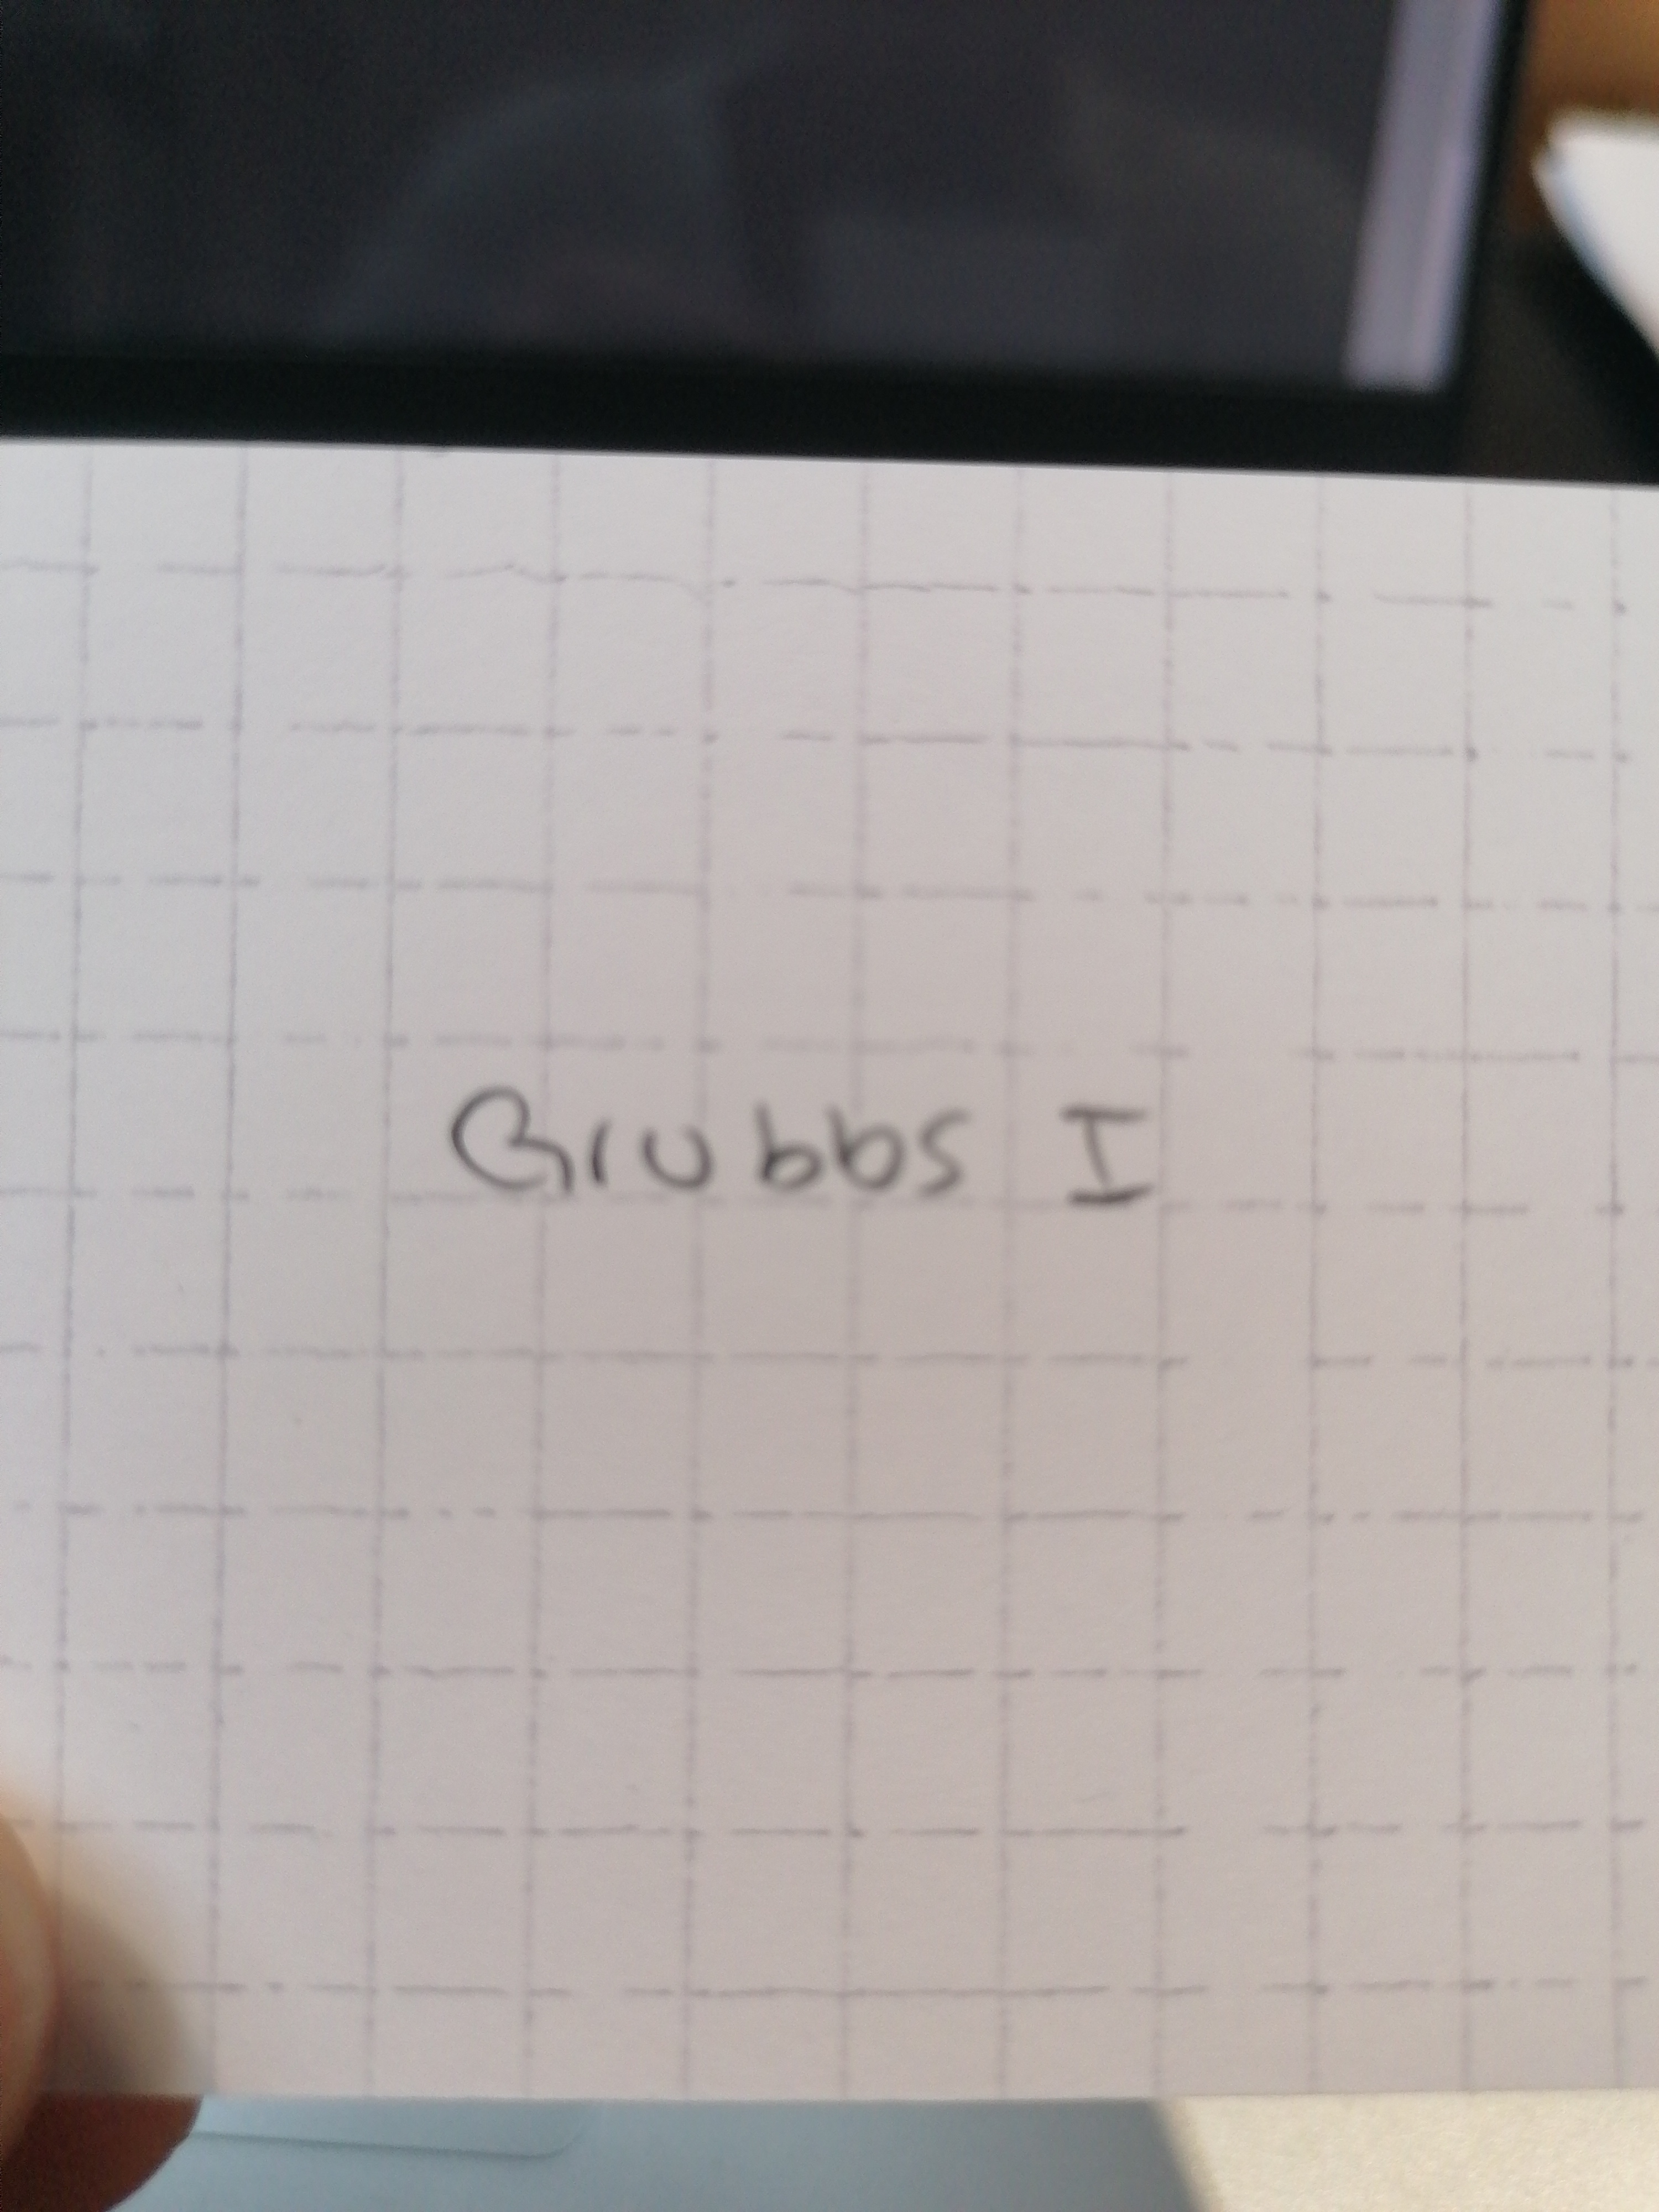 Grubbs I